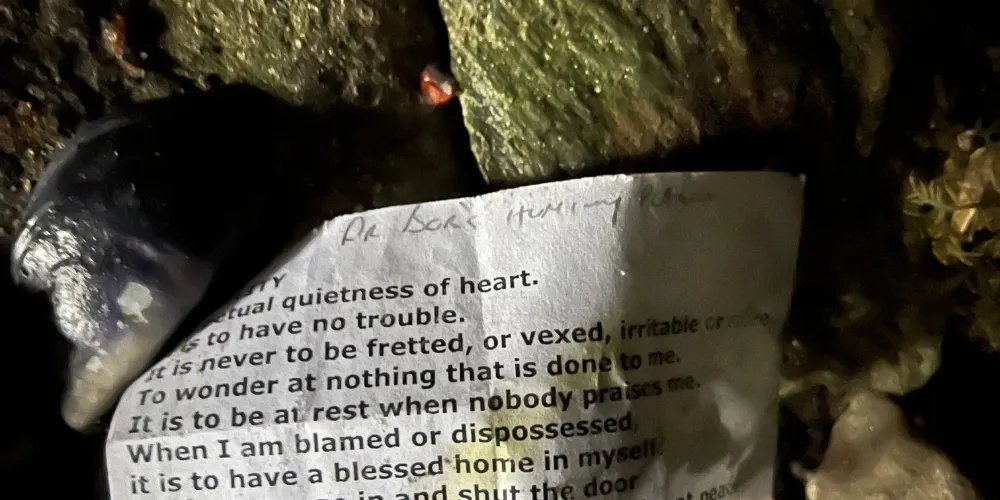 DR BOB'S HUMILITY
TY
tual quietness of heart.
s to have no trouble.
It is never to be fretted, or vexed, irritable or
To wonder at nothing that is done to me.
It is to be at rest when nobody praises me.
When I am blamed or dispossessed,
it is to have a blessed home in myself
in and shut the door
at peace